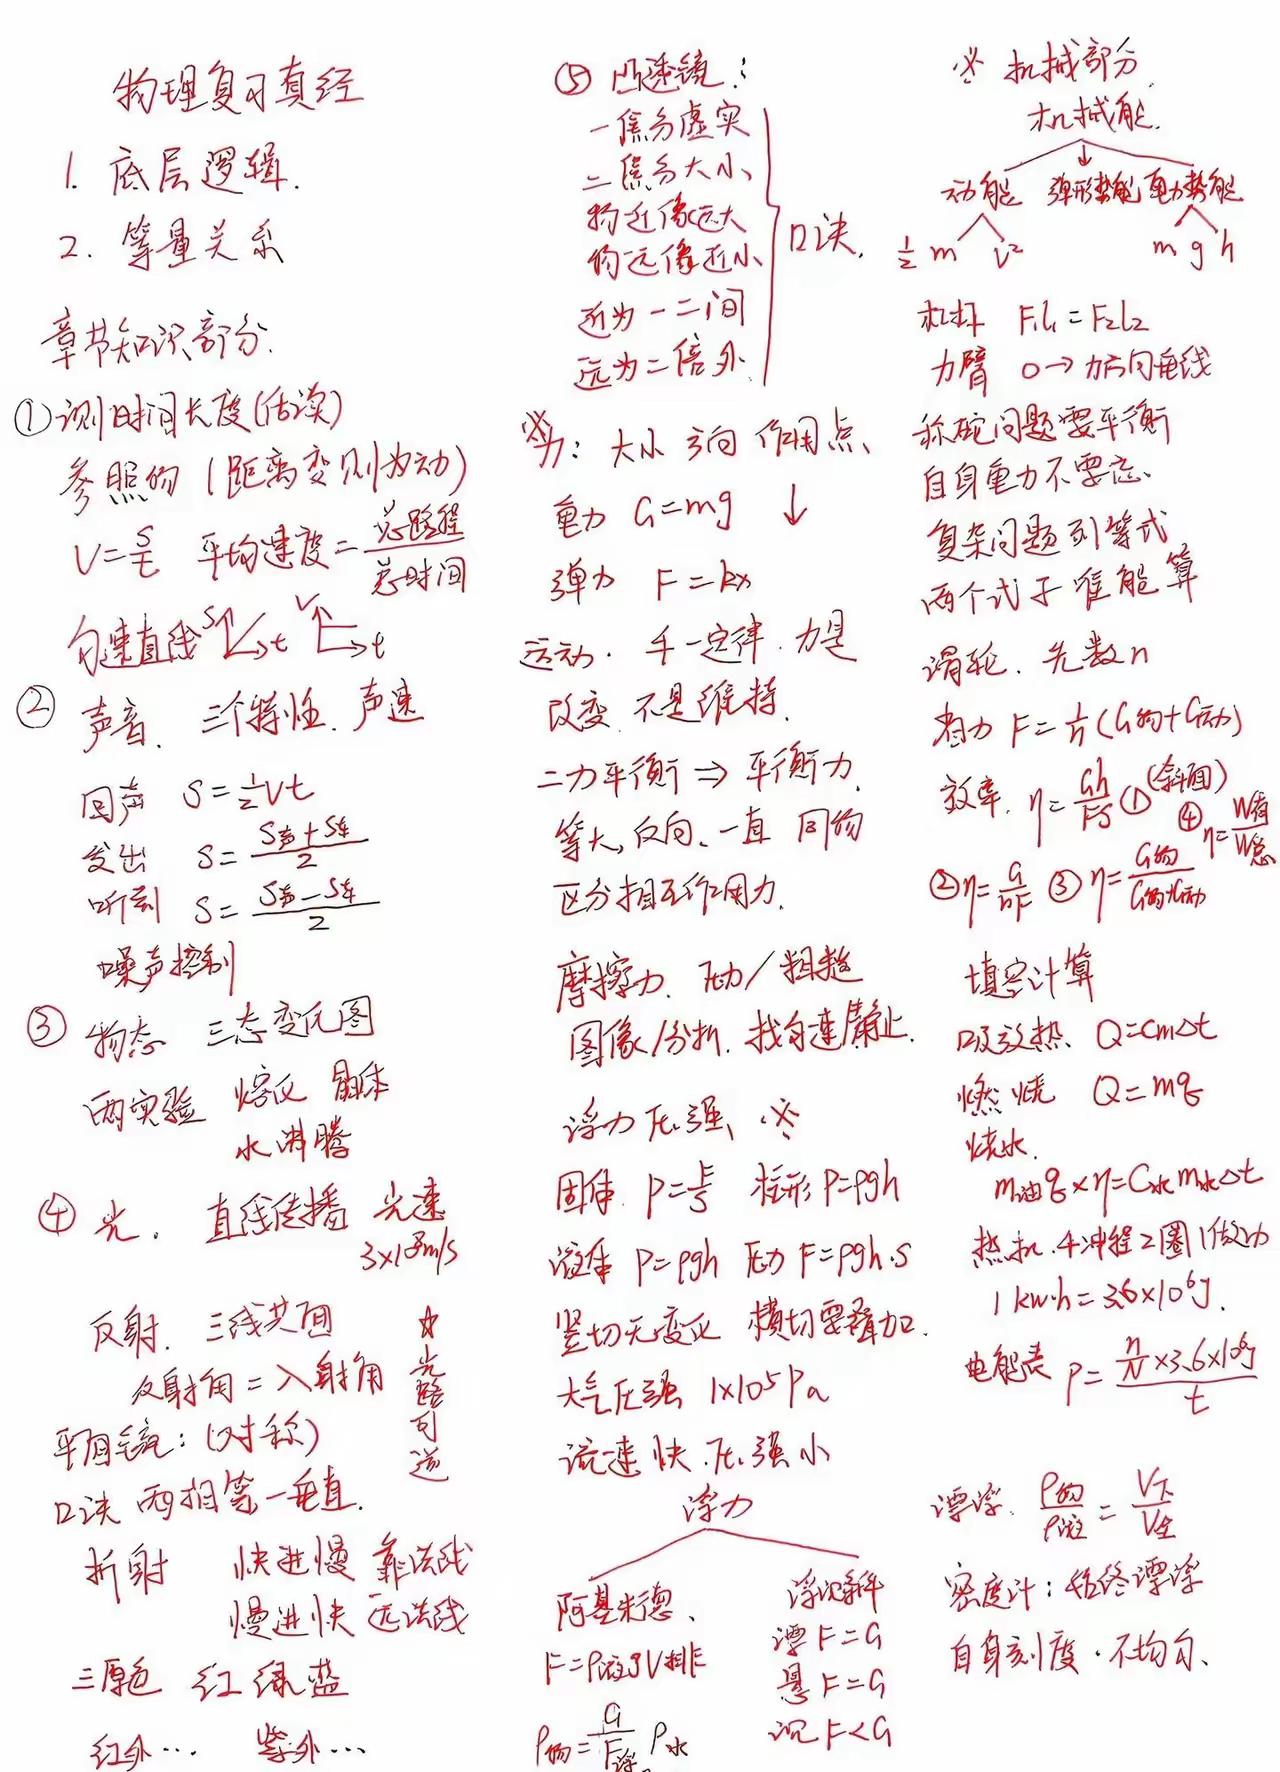 物理复习真经
1. 底层逻辑.
2. 等量关系
章节知识部分.
① 测时间长度(估读)
参照物 (距离变则为动)
V=S/t 平均速度=总路程/总时间
匀速直线 S t V t
② 声音. 三个特性. 声速
回声 S=1/2Vt
发出 S=(S声+S车)/2
听到 S=(S声-S车)/2
噪声控制
③ 物态 三态变化图
两实验 熔化 晶体
水沸腾
④ 光. 直线传播 光速
3×10⁸m/s
反射. 三线共面
反射角=入射角
☆光路可逆
平面镜:(对称)
口诀 两相等一垂直.
折射 快进慢 靠法线
慢进快 远法线
三原色 红 绿 蓝
红外… 紫外…
⑤ 凸透镜:
一焦分虚实
二焦分大小
物近像远大
物远像近小
近为一二间
远为二倍外
口诀.
※力: 大小 方向 作用点、
重力 G=mg ↓
弹力 F=kx
运动. 牛一定律. 力是
改变 不是维持.
二力平衡⇒平衡力.
等大,反向、一直 同物
区分相互作用力.
摩擦力、压力/粗糙
图像/分析. 找匀速/静止.
浮力 压强、※
固体. P=F/S 柱形 P=ρgh
液体 P=ρgh 压力 F=ρgh·S
竖切无变化 横切要叠加.
大气压强 1×10⁵Pa
流速快.压强小
浮力
阿基米德、
F=ρ液gV排
ρ物=G/F浮 ρ水
浮沉条件
漂 F=G
悬 F=G
沉 F<G
※ 机械部分
机械能.
动能 弹形势能 重力势能
1/2 m v² m g h
杠杆 F₁l₁=F₂l₂
力臂 O→力方向垂线
称砣问题要平衡
自身重力不要忘.
复杂问题列等式
两个式子准能算
滑轮. 先数n
省力 F=1/n(G物+G动)
效率. η=Gh/FS ① (斜面)
④ η=W有/W总
② η=G/nF ③ η=G物/G物+G动
填空计算
吸放热、Q=cmΔt
燃烧 Q=mq
烧水.
m油q×η=C水m水Δt
热机.4冲程2圈1做功
1kw·h=3.6×10⁶J.
电能表 P=(n/N×3.6×10⁶J)/t
漂浮. ρ物/ρ液=V下/V全
密度计: 始终漂浮
自身刻度.不均匀、